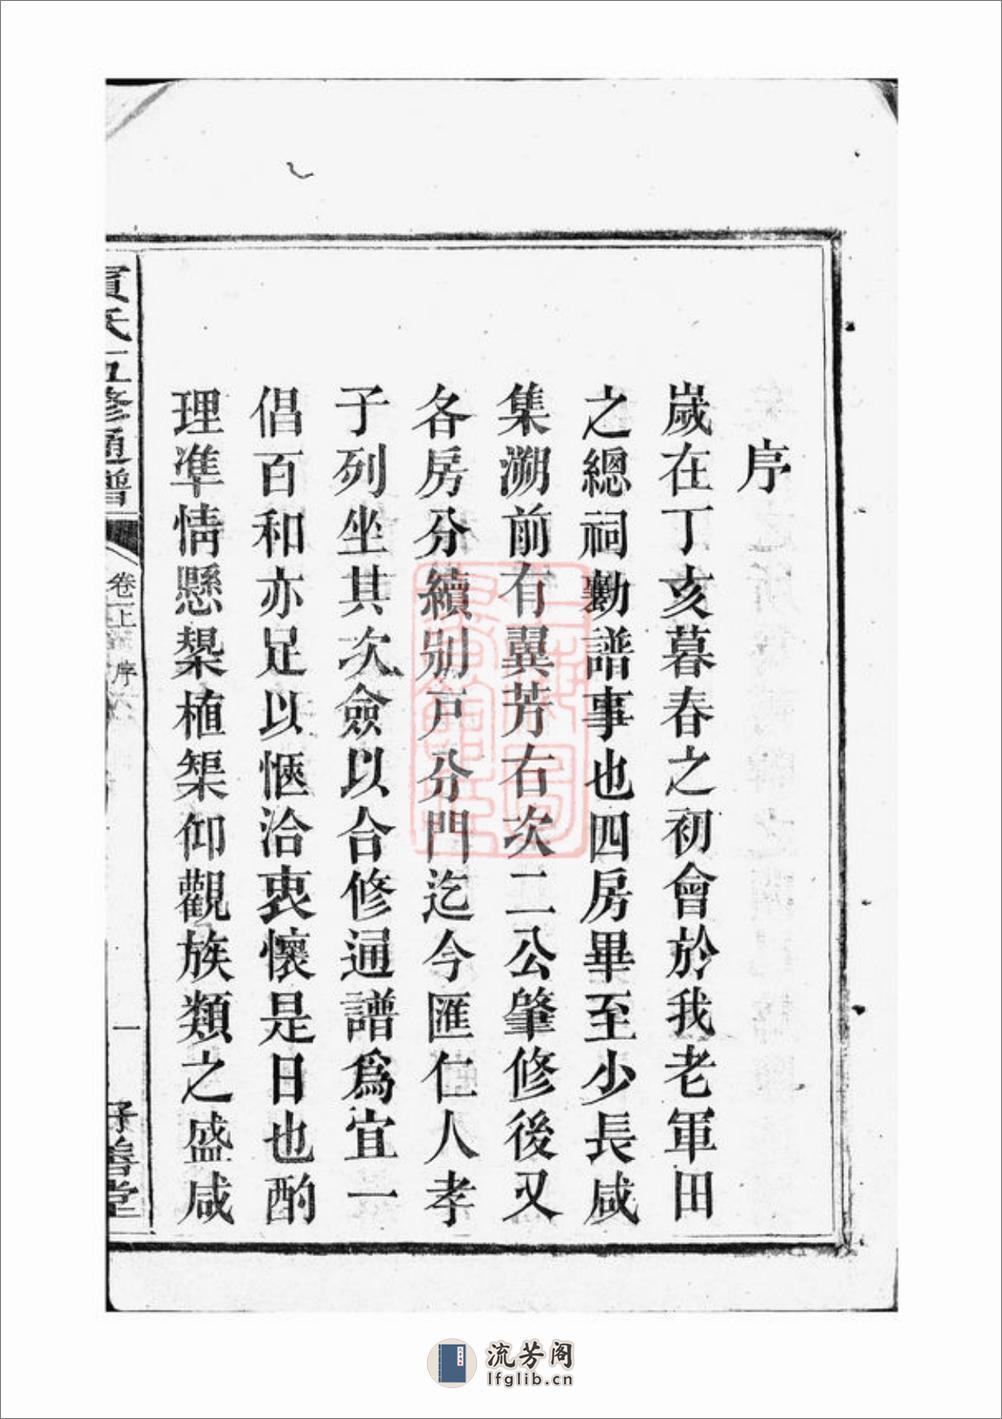 序
歲在丁亥暮春之初會於我老軍田
之總祠勷譜事也四房畢至少長咸
集溯前有翼芳右次二公肇修後又
各房分續别戶分門迄今匯仁人孝
子列坐其次僉以合修通譜爲宜一
倡百和亦足以愜洽衷懷是日也酌
理準情懸槼植榘仰觀族類之盛咸
氏五修通譜
卷一上
序
一
善堂
流芳阁
lfglib.cn